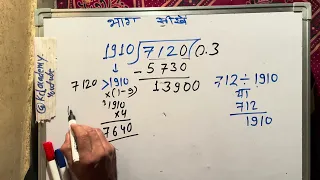 भाग सीखें
1910 ) 7120 ( 0.3
- 5730
13900
7120 > 1910
×(1-9)
1910
×4
7640
712 ÷ 1910
या
712
1910